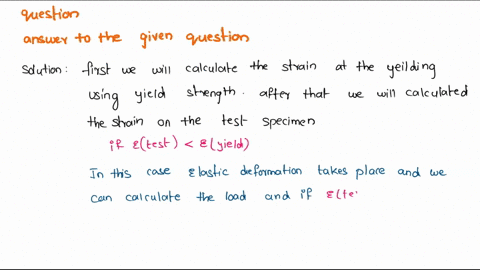 question
answer to the given question
Solution: first we will calculate the strain at the yeilding
using yield strength. after that we will calculated
the strain on the test specimen
if ε(test) < ε(yield)
In this case Elastic deformation takes place and we
can calculate the load and if ε(te